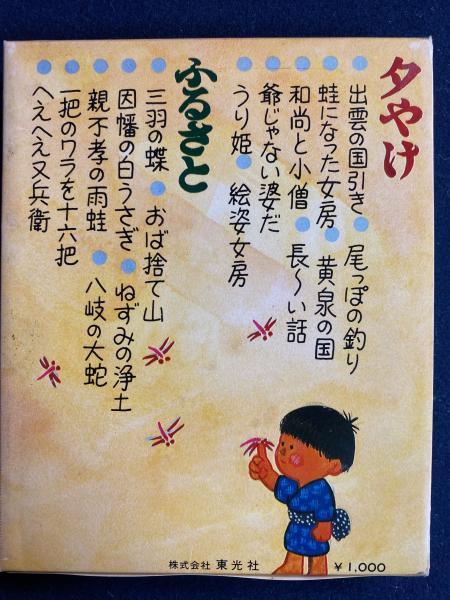 夕やけ
出雲の国引き 尾っぽの釣り
蛙になった女房 黄泉の国
和尚と小僧 長〜い話
爺じゃない婆だ
うり姫 絵姿女房
ふるさと
三羽の蝶 おば捨て山
因幡の白うさぎ ねずみの浄土
親不孝の雨蛙 八岐の大蛇
一把のワラを十六把
へえへえ又兵衛
株式会社 東光社
￥1,000